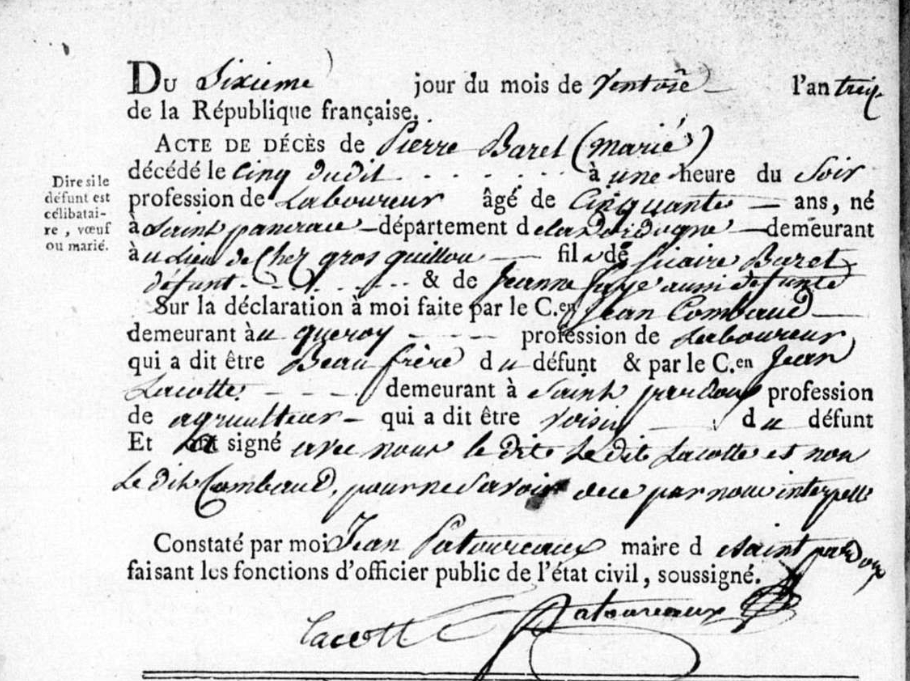 DU Sixieme jour du mois de Ventose l'an treize
de la République française.
ACTE DE DÉCÈS de Pierre Baret (marié)
décédé le Cinq dudit à une heure du Soir
Dire si le
défunt est
célibatai-
re, vœuf
ou marié.
profession de Laboureur âgé de Cinquante ans, né
à Saint pancrace département de la Dordogne demeurant
à u Lieu de Chez gros guillou fils de Sicaire Baret
défunt & de Jeanne faye aussi défunte
Sur la déclaration à moi faite par le C.en Jean Combaud
demeurant àu queroy profession de Laboureur
qui a dit être Beau frère du défunt & par le C.en Jean
Lacotte demeurant à Saint pardoux profession
de agriculteur qui a dit être voisin du défunt
Et signé avec nous le dit Lacotte et non
Le dit Combaud, pour ne Savoir de ce par nous interpellé
Constaté par moi Jean Patoureaux maire d e Saint pardoux
faisant les fonctions d'officier public de l'état civil, soussigné.
Patoureaux
Lacotte